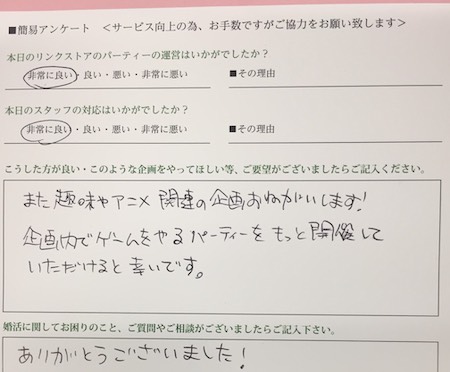 ■簡易アンケート　＜サービス向上の為、お手数ですがご協力をお願い致します＞
本日のリンクストアのパーティーの運営はいかがでしたか？
非常に良い・良い・悪い・非常に悪い　■その理由
本日のスタッフの対応はいかがでしたか？
非常に良い・良い・悪い・非常に悪い　■その理由
こうした方が良い・このような企画をやってほしい等、ご要望がございましたらご記入ください。
また趣味やアニメ関連の企画おねがいします!
企画内でゲームをやるパーティーをもっと開催して
いただけると幸いです。
婚活に関してお困りのこと、ご質問やご相談がございましたらご記入下さい。
ありがとうございました!